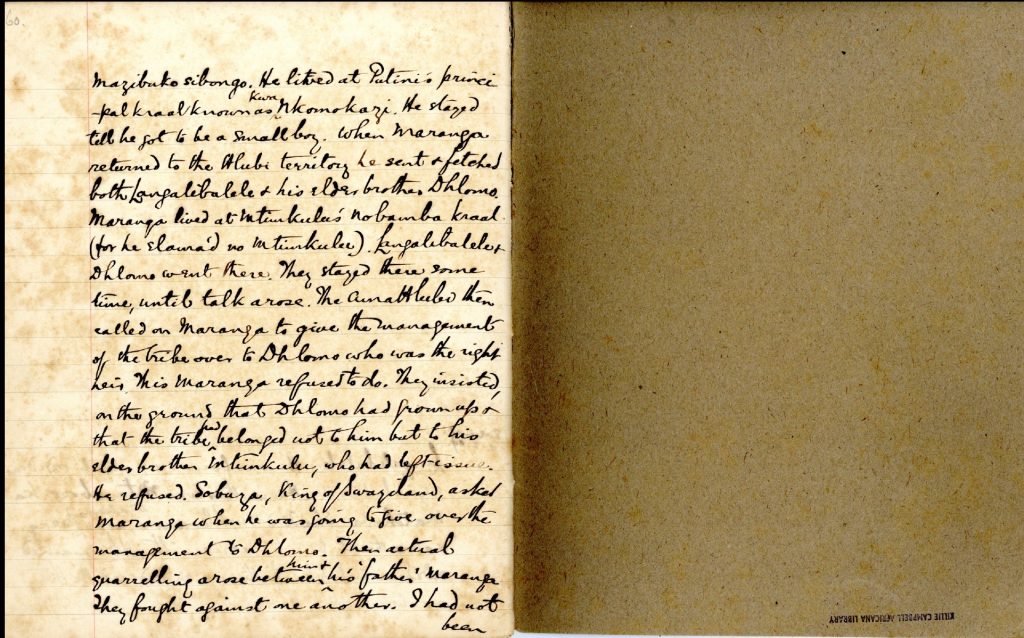 60.
Mazibuko sibongo. He lived at Putini's princi
-pal kraal known as kwa Nkomokazi. He stayed
till he got to be a small boy. When Maranga
returned to the Hlubi territory he sent & fetched
both Langalibalele & his elder brother Dhlomo.
Maranga lived at Mtimkulu's Nobamba kraal
(for he elama'd no Mtimkulu). Langalibalele &
Dhlomo went there. They stayed there some
time, until talk arose. The amaHlubi then
called on Maranga to give the management
of the tribe over to Dhlomo who was the right
heir. This Maranga refused to do. They insisted,
on the ground that Dhlomo had grown up &
that the tribe had belonged not to him but to his
elder brother Mtimkulu, who had left issue.
He refused. Sobuza, King of Swaziland, asked
Maranga when he was going to give over the
management to Dhlomo. Then actual
quarrelling arose between him & his 'father' Maranga
They fought against one another. I had not
been
KILLIE CAMPBELL AFRICANA LIBRARY